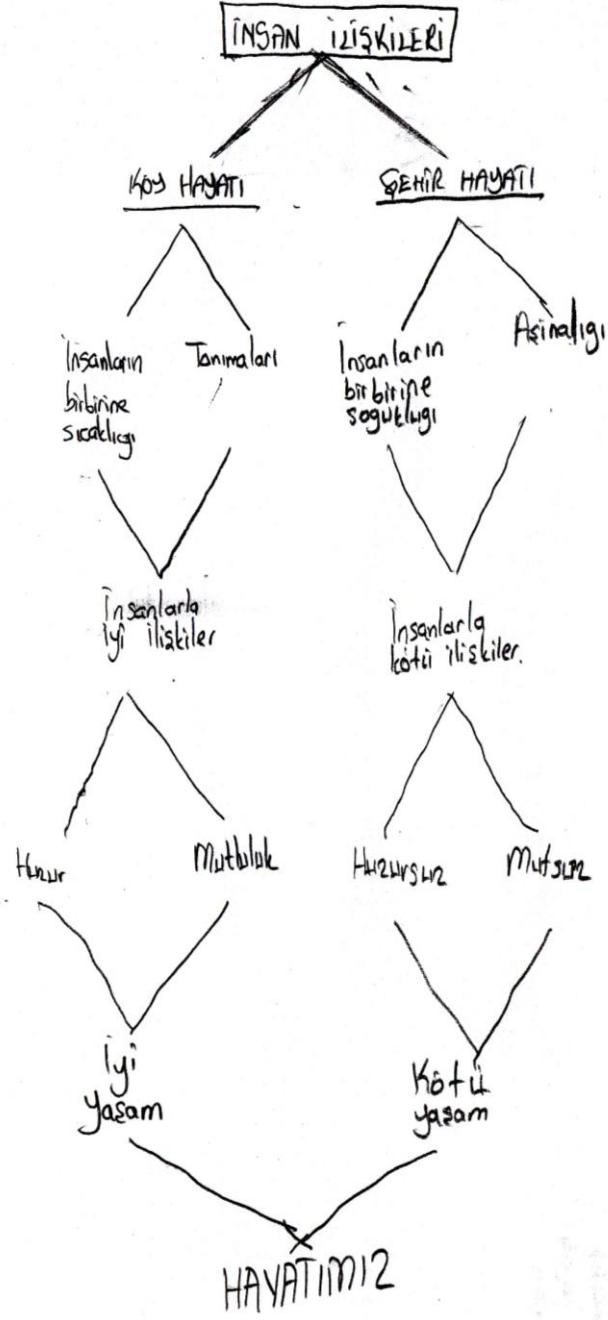 İNSAN İLİŞKİLERİ
KÖY HAYATI
ŞEHİR HAYATI
İnsanların
birbirine
sıcaklıgı
Tanımaları
İnsanların
birbirine
sogukługı
Aşinalıgı
İnsanlarla
iyi ilişkiler
İnsanlarla
kötü ilişkiler.
Huzur
Mutluluk
Huzursuz
Mutsuz
İyi
yaşam
Kötü
yaşam
HAYATIMIZ